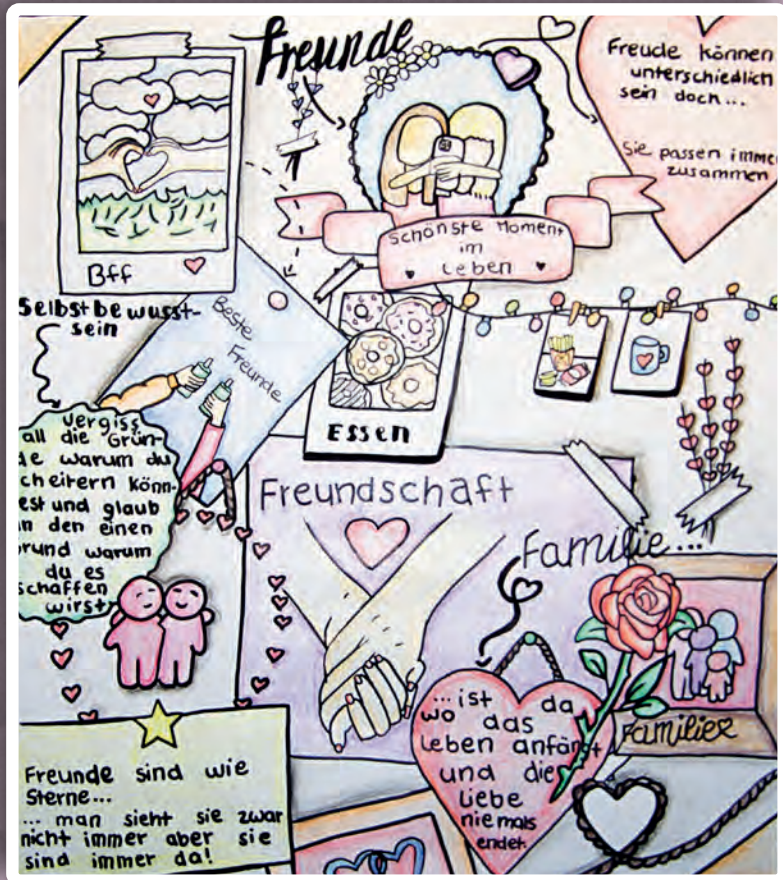 Freunde
Freude können
unterschiedlich
sein doch...
Sie passen imme
zusammen
Schönste Moment
im
Leben
Bff
Selbstbewusst-
sein
Beste
Freunde
Vergiss
all die Grün-
de warum du
cheitern könn-
est und glaub
n den einen
rund warum
du es
schaffen
wirst
ESSEN
Freundschaft
Familie...
...ist da
wo das
Leben anfängt
und die
Liebe
niemals
endet.
Familie
Freunde sind wie
Sterne...
... man sieht sie zwar
nicht immer aber sie
sind immer da!